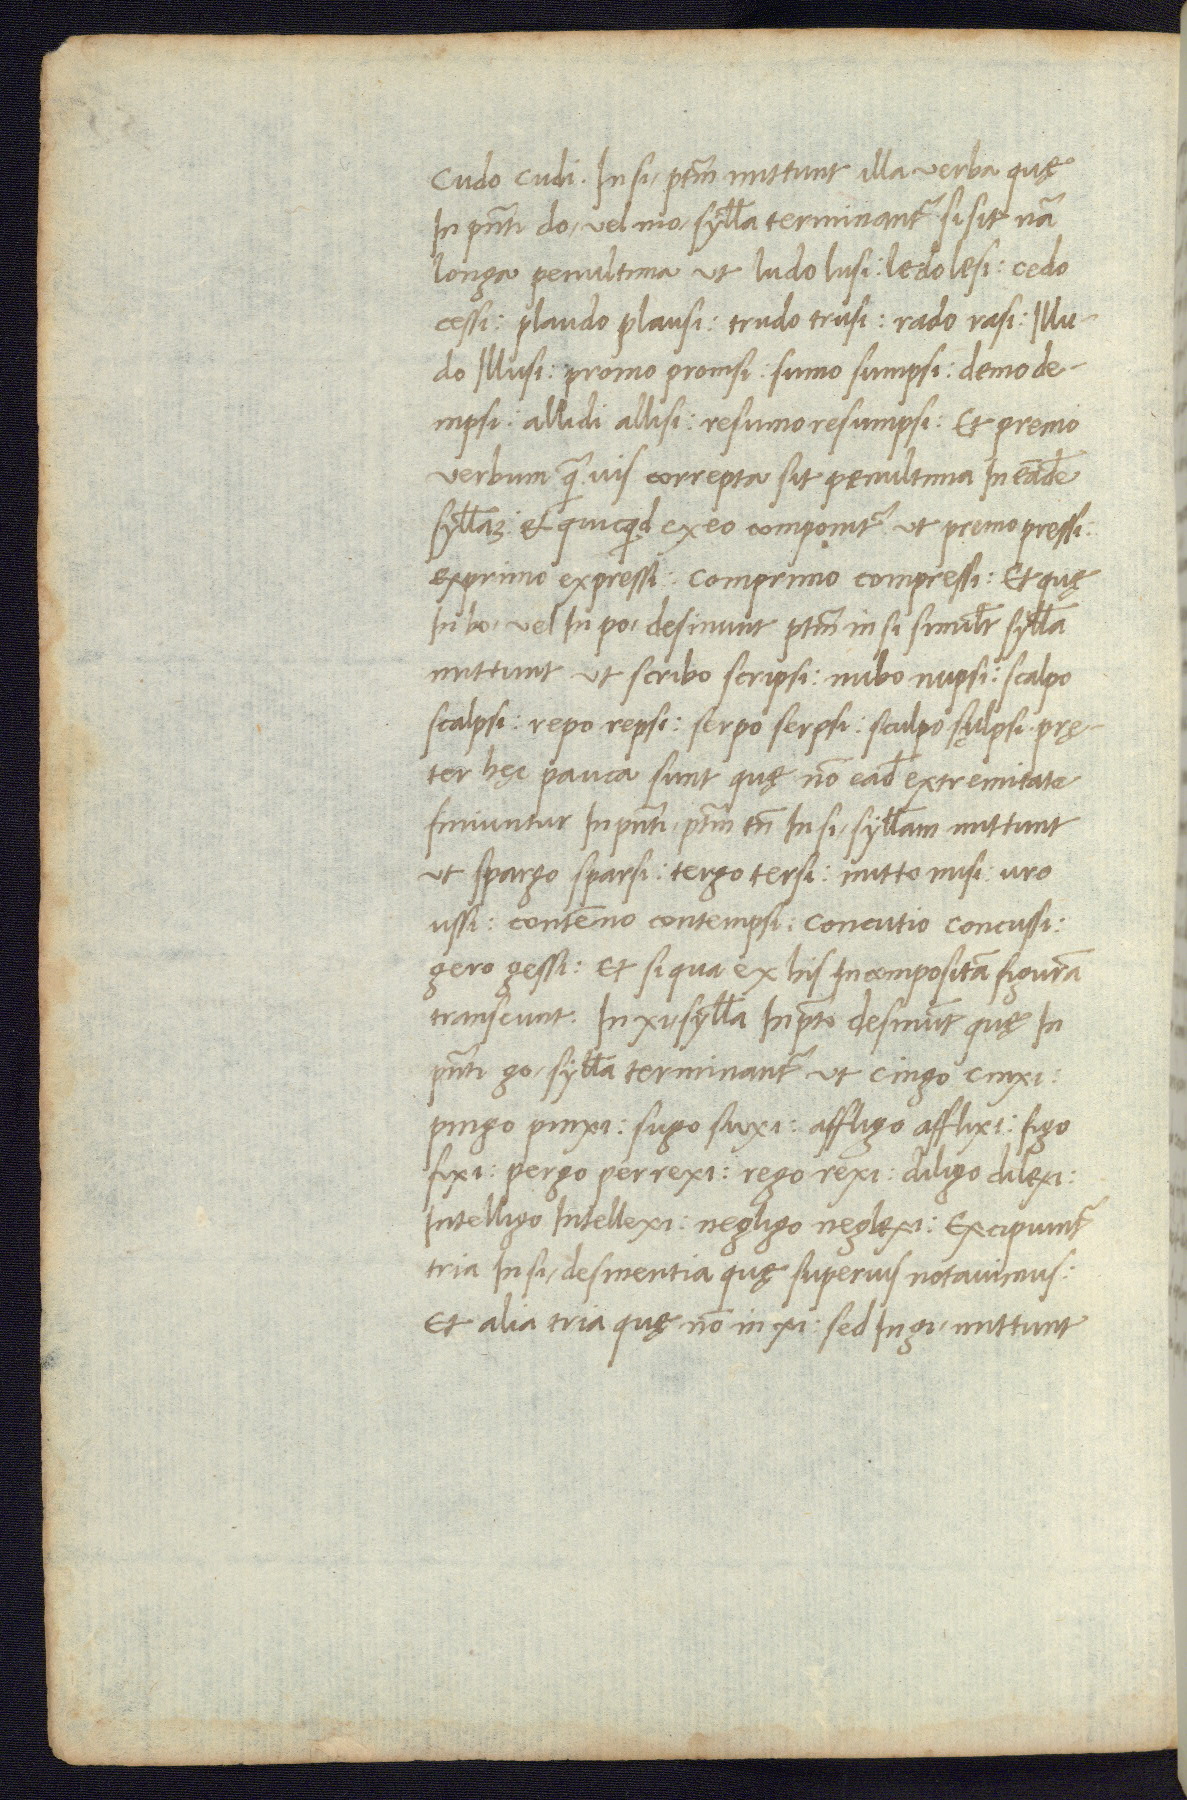 Cudo cudi. In si, ptm̃ mittunt illa verba quę
In pñti do, vel mo, syll̃a terminant᷑ si sit nã
longa penultima ut ludo lusi: lędo lęsi: cedo
cessi: plaudo plausi: trudo trusi: rado rasi: Illu-
do Illusi: promo promsi: sumo sumpsi: demo de-
mpsi: allidi allisi: resumo resumpsi: Et premo
verbum q̃uis correpta sit penultima In eãdẽ
syll̃aʒ: Et quicq̃d ex eo componit᷑ ut premo pressi:
exprimo expressi: comprimo compressi: Et quę
In bo, vel In po, desinunt ptm̃ in si simil̃r syll̃a
mittunt ut scribo scripsi: nubo nupsi: scalpo
scalpsi: repo repsi: serpo serpsi: sculpo sculpsi. prę-
ter hęc pauca sunt quę nõ ead̃ extremitate
finiuntur In pñti, ptm̃ tñ In si, syll̃am mittunt
ut spargo sparsi: tergo tersi: mitto misi: uro
ussi: contẽno contempsi: concutio concussi:
gero gessi: Et si qua ex his In compositã figurã
transeunt. In xi, syll̃a In p̃to desinũt quę In
pñti go, syll̃a terminant᷑ ut cingo cinxi:
pingo pinxi: sugo suxi: affligo afflixi: figo
fixi: pergo perrexi: rego rexi: diligo dilexi:
Intelligo Intellexi: negligo neglexi: Excipiunt᷑
tria In si, desinentia quę superius notavimus:
Et alia tria quę nõ in xi: sed In gi, mittunt